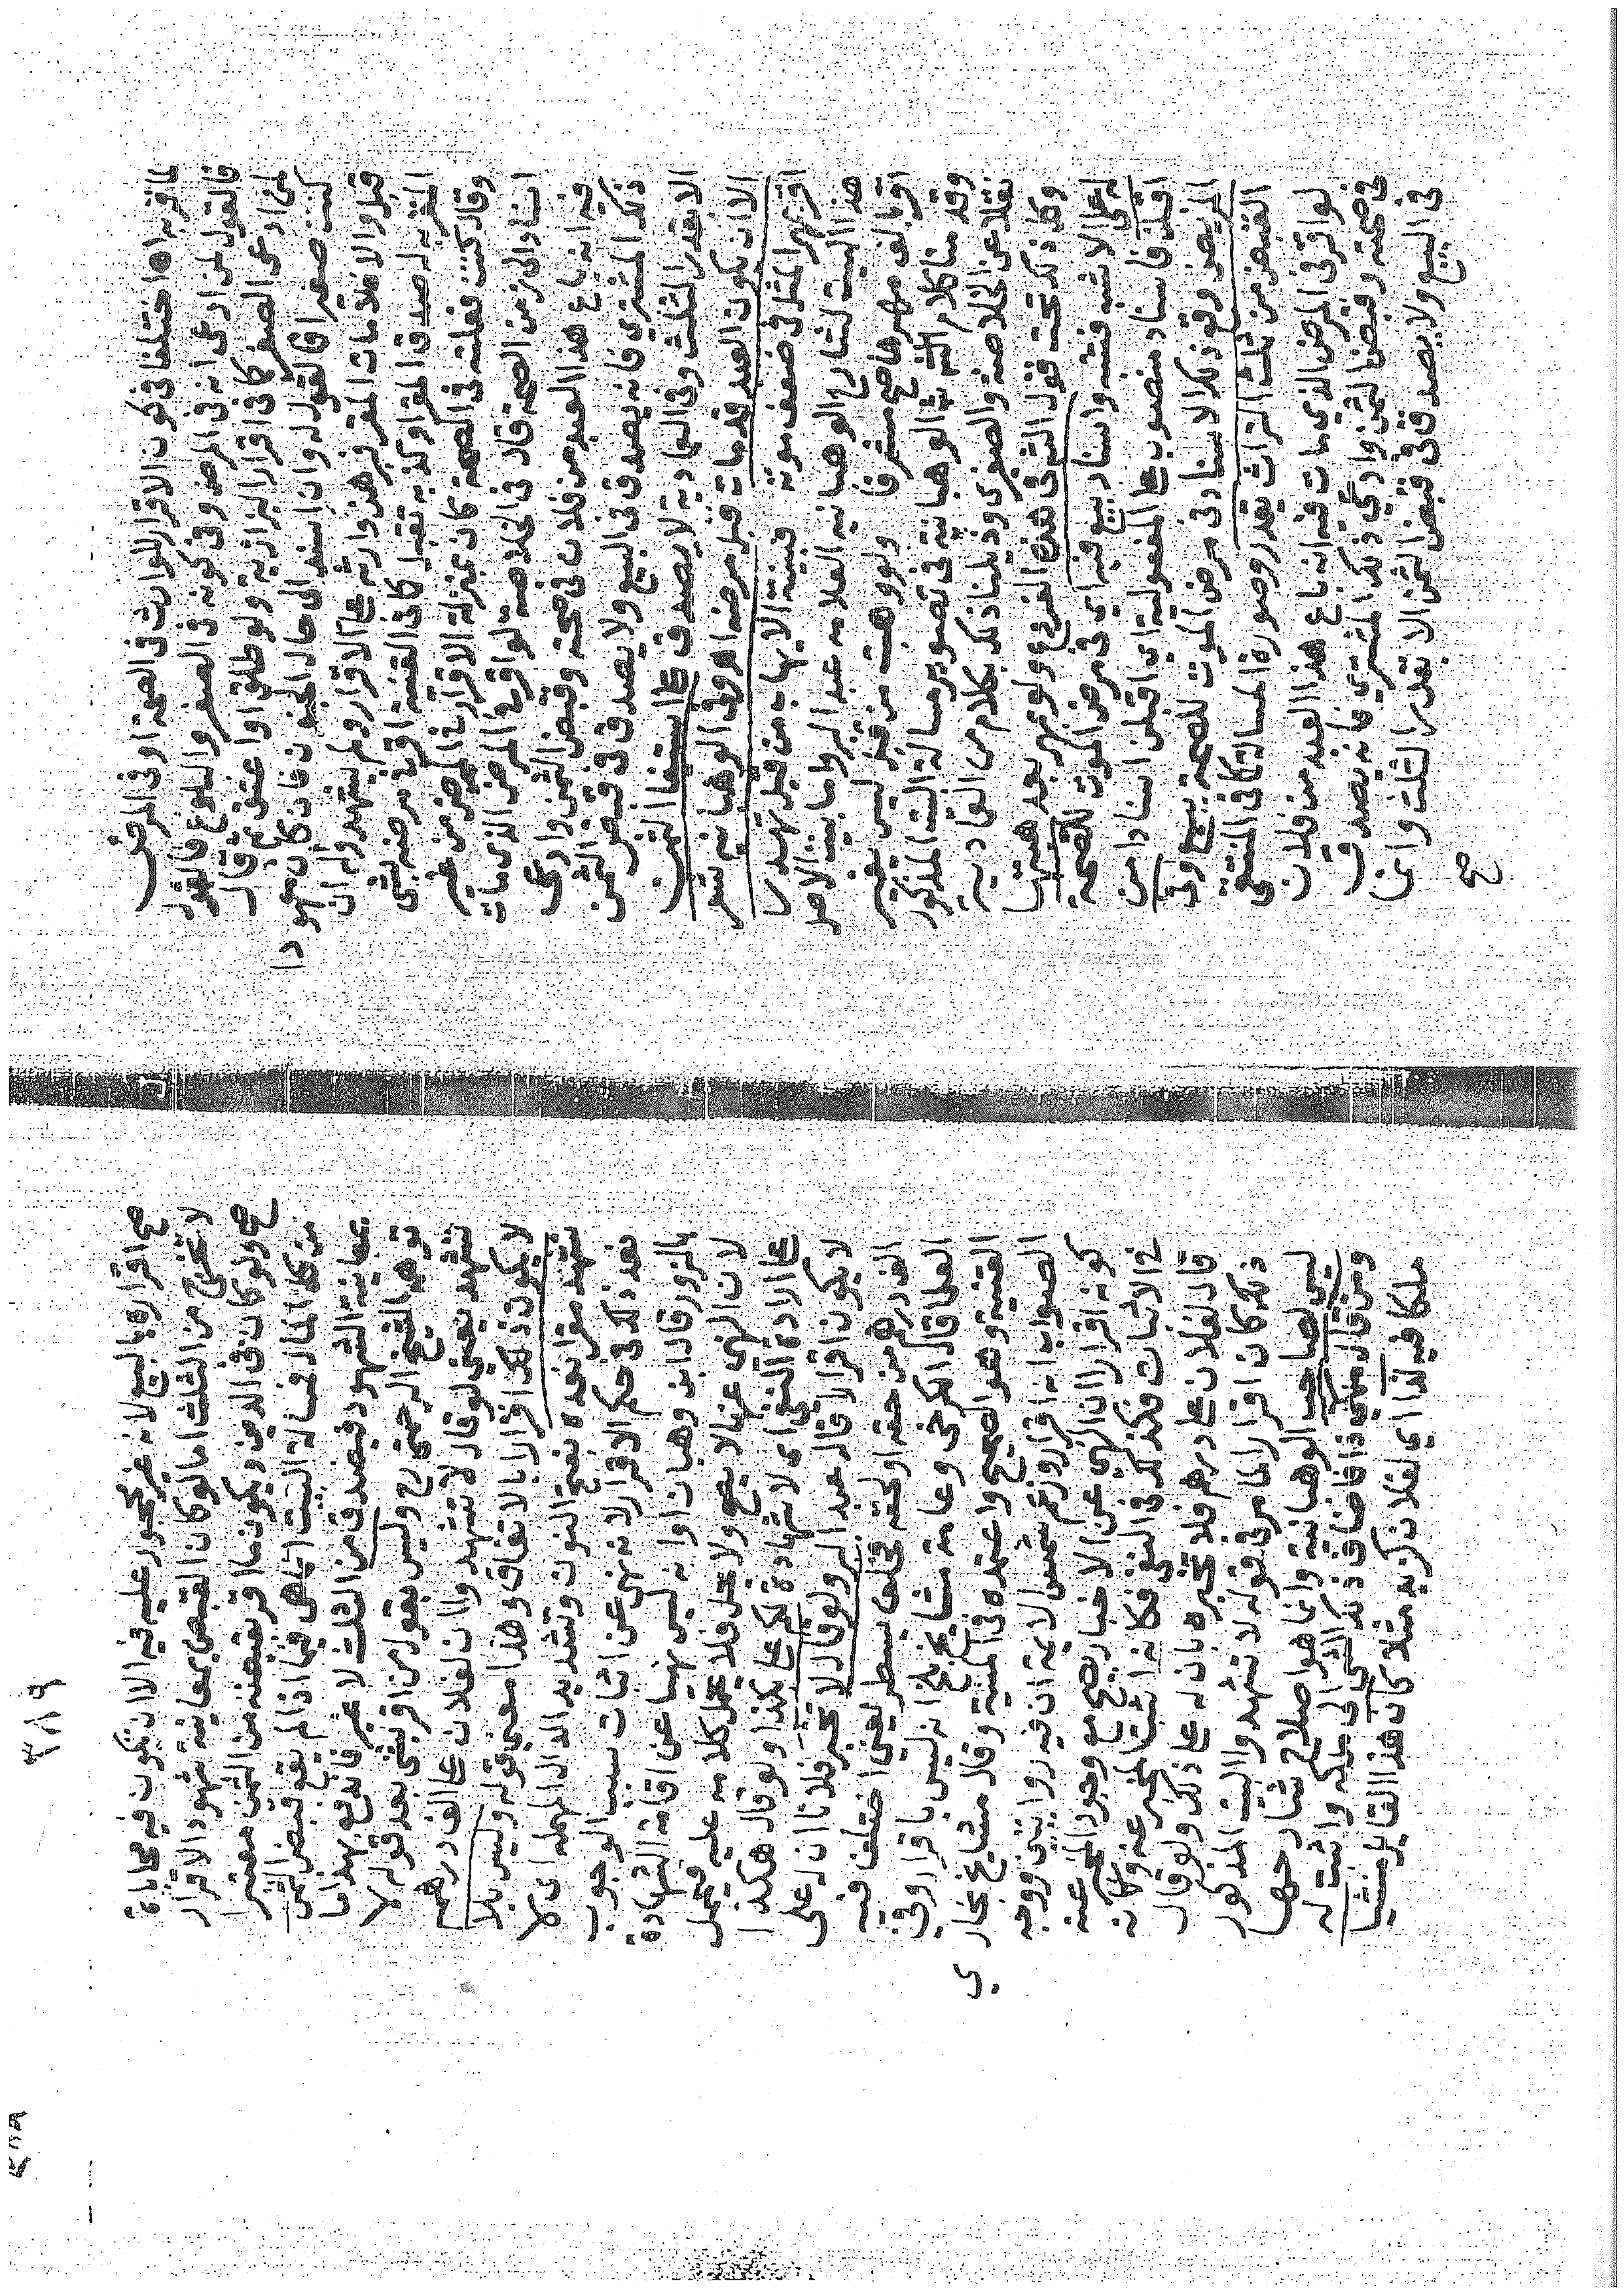 لما قر به اه اختلفا في كون الاقرار للوارث في الصحة او في المرض
فالقول لمن ادعى انه في المرض وفي كونه في الصغر والبلوغ فالقول
لمن ادعى الصغر كما في اقرار البزازية ولو طلق او اعتق ثم قال
كنت صغيرا فالقول له وان اسند الى حال الجنون فان كان معهودا
قبل والا فلا مات المقر فبرهن وارثه على الاقرار ولم يشهدوا له ان
المقر له صدق المقر او كذبه تقبل كما في القنية اقر في مرضه بشي
وقال كنت فعلته في الصحة كان بمنزلة الاقرار في المرض من غير
اسناد الى زمن الصحة قال في الخلاصة لو اقر في المرض الذي مات
فيه انه باع هذا العبد من فلان في صحته وقبض الثمن وادعى
ذلك المشتري فانه يصدق في البيع ولا يصدق في قبض الثمن
الا بقدر الثلث وفي العمادية لا يصدق على استيفا الثمن
الا ان يكون العبد قد مات قبل مرضه اه وفي الوهبانيه شعر
اقر بمهر المثل في ضعف موته فبينة الايهاب من قبل تهدر
هذا البيت لشارح الوهبانيه العلامه عبد البر واما بيت الاصل
اقر بالف مهرها صح مشرفا ولو وهبت من قبل ليس يغير
وقد منا كلام الش ب الوهبانية في تصوير مسالة البيت المذكور
نقلا عن الخلاصة والصغرى وذيلنا ذلك بكلام من العمادية
وكل ذلك تحت قول الش في هذه الفروع ولو بمهر بعد هبتها
له على الاشبه فتنبه واسناد بيع فيه اي في مرض الموت للصحة
اقبلن فاسناد منصوب على المفعولية اي اقبلن اسنادا من
المريض وقوع ذلك الاسناد في مرض الموت للصحة ببيع وفي
القبض من ثلث التراث يقدر وصورة المسالة كما في المنتقى
لو اقر في المرض الذي مات فيه انه باع هذا العبد من فلان
في صحته وقبض الثمن وادعى ذلك المشتري فانه يصدق
في البيع ولا يصدق في قبض الثمن الا بقدر الثلث وانما
صح
صح اقراره بالبيع لانه غير محجور عليه فيه الا ان يكون فيه محاباة
لا تخرج من الثلث اما لو كان القبض بمعاينة شهود الاقرار
صح ولو كان في الدين ويكون ما اقر بقبضه من الثمن معتبرا
من كل المال فمسالة البيت انما هي فيما اذا لم يقع قبض الثمن
بمعاينة الشهود فيصدق من الثلث لا غير فاندفع بهذا ما
توهم الشيخ الرحمتي رح وليس بقول من اقر بشي بعد قوله لا
تشهد يعني لو قال لا تشهدوا ان لفلان على الف درهم
لا يكون ذلك اقرارا بالاتفاق وهذا معنى قوله وليس بلا
تشهد مقرا نعده بفتح النون وتشديد الدال المهمله اي لا
نعد ذلك في حكم الاقرار لانه نهي عن اثبات سبب الوجوب
بالزور قال ابن وهبان او انه ليس نهيا عن اقامة الشهادة
لان النهي عنها لا يصح ولا يحل فلا يحمل كلامه عليه فيحمل
على الارادة النفي اي لا شهادة لك على بكذا ولو قال هكذا
لا يكون اقرارا قال عبد البر ولو قال لا تخبر فلانا ان له على
الف درهم من حقه او لحقه فخلف يسطر يعني اختلف فيه
العلما قال الكرخي وعامة مشايخ بلخ انه ليس باقرار وفي
القنية وهو الصحيح واعتمده في المنية وقال مشايخ بخاري
الصواب انه اقرار وزعم شمس الايمة ان فيه روايتين ووجه
كونه اقرارا ان النهي عن الاخبار يصح مع وجود المخبر عنه
في الاثبات فكذلك في النفي فكانه اثبت المخبر عنه وكانه
قال لفلان على درهم فلا تخبره بان له على ذلك ولو قال
ذلك كان اقرارا لما مر في قوله لا تشهدوا البيت المذكور
ليس لصاحب الوهبانية وانما هو اصلاح شارحها
ومن قال ملكي ذا فاضاف ذلك الشي الى ملكه واثبته له
ملكا فيه لذا اي لفلان كزيد مثلا كان هذا القايل منشيا
٣٨٩